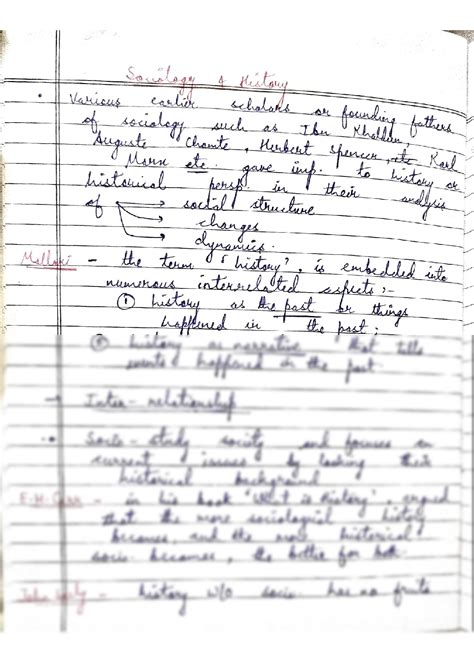 Sociology & History
• Various earlier scholars or founding fathers
of sociology such as Ibn Khaldun,
Auguste Chomte, Herbert Spencer, etc Karl
Marx etc gave imp. to history or
historical persp. in their analysis
of → social structure
→ changes
→ dynamics.
- the term 'history', is embedded into
numerous interrelated aspects;-
① history as the past or things
happened in the past;
② history as narrative that tells
events happened in the past
→ Inter-relationship
• Socio- study society and focuses on
current issues by looking their
historical background
E.H. Carr - in his book 'What is History', argued
that the more sociological history
becomes, and the more historical
socio. becomes, the better for both.
- history w/o socio. has no fruits